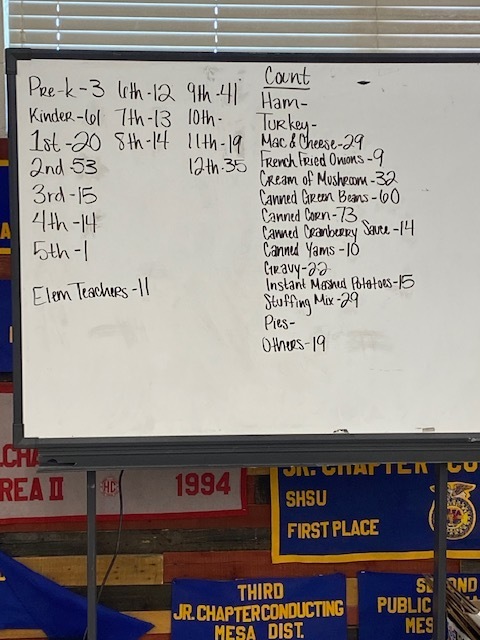 Pre-k-3 6th-12 9th-41
Kinder-61 7th-13 10th-
1st-20 8th-14 11th-19
2nd-53 12th-35
3rd-15
4th-14
5th-1
Elem Teachers-11
Count
Ham-
Turkey-
Mac & Cheese-29
French Fried Onions-9
Cream of Mushroom-32
Canned Green Beans-60
Canned Corn-73
Canned Cranberry Sauce-14
Canned Yams-10
Gravy-22
Instant Mashed Potatoes-15
Stuffing Mix-29
Pies-
Others-19
AREA II 1994
JR. CHAPTER
SHSU
FIRST PLACE
THIRD
JR. CHAPTER CONDUCTING
MESA DIST.
SECOND
PUBLIC